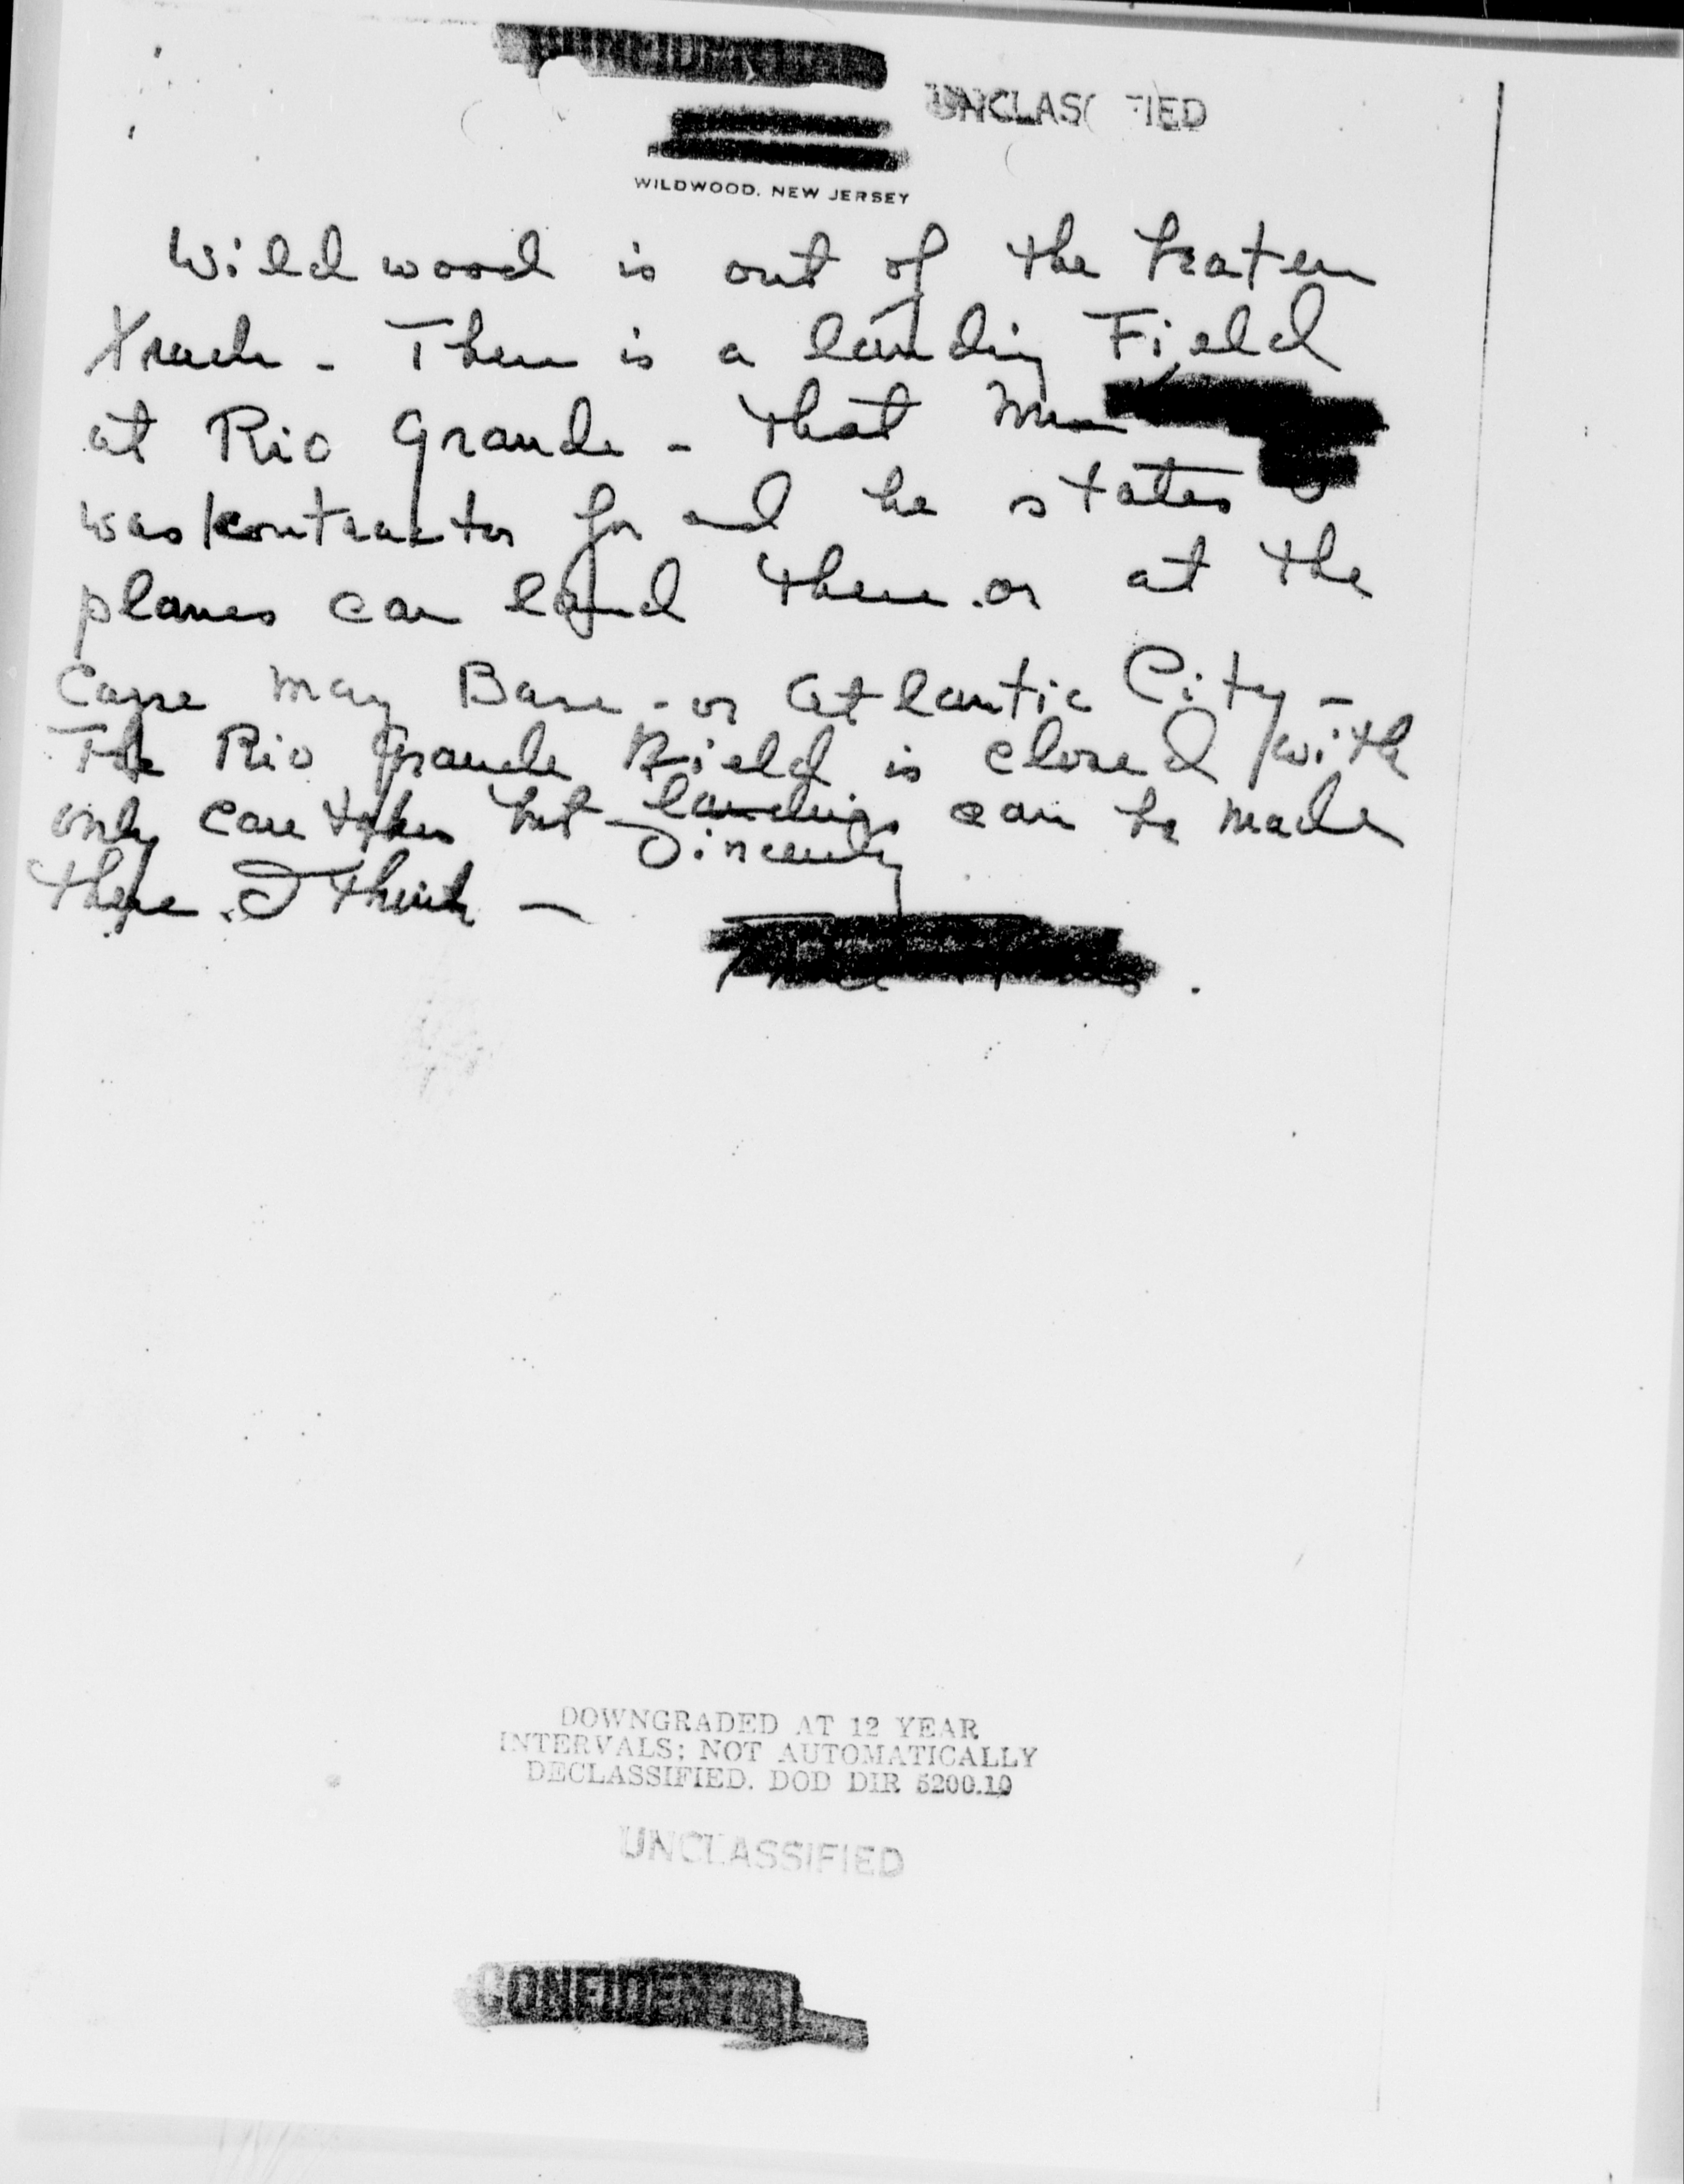 CONFIDENTIAL
UNCLASSIFIED
WILDWOOD, NEW JERSEY
Wildwood is out of the beaten
track - There is a landing Field
at Rio Grande - that
was contractor for and he states
planes can land there or at the
Cape May Base - or Atlantic City -
The Rio Grande Field is closed with
only care taker but landings can be made
there. I think -
Sincerely
DOWNGRADED AT 12 YEAR
INTERVALS; NOT AUTOMATICALLY
DECLASSIFIED. DOD DIR 5200.10
UNCLASSIFIED
CONFIDENTIAL